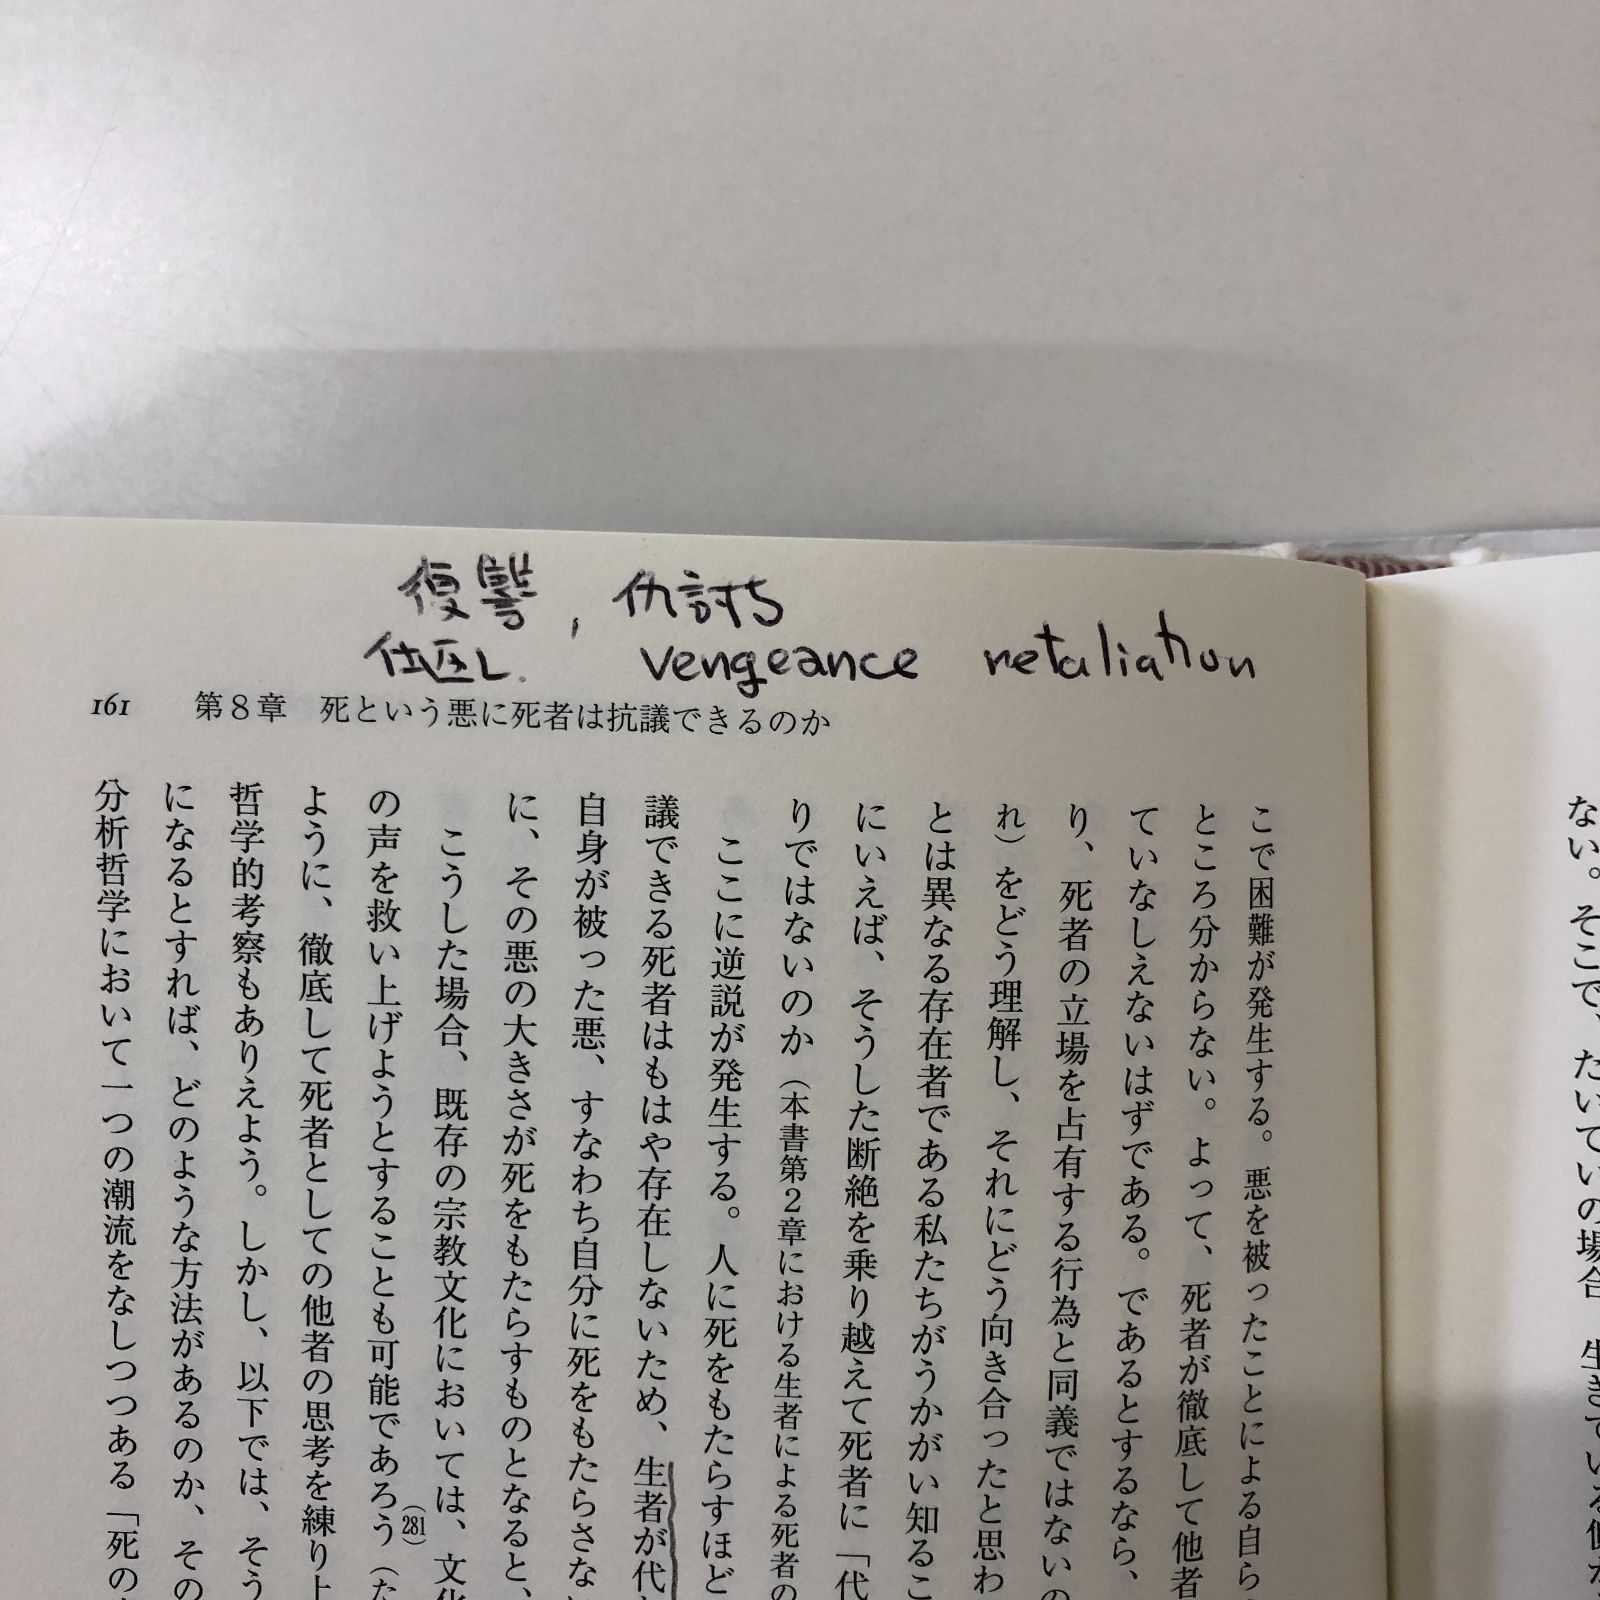 復讐, 仇討ち
仕返し. vengeance retaliation
161 第8章 死という悪に死者は抗議できるのか
こで困難が発生する。悪を被ったことによる自ら
ところ分からない。よって、死者が徹底して他者
ていなしえないはずである。であるとするなら、
り、死者の立場を占有する行為と同義ではないの
れ）をどう理解し、それにどう向き合ったと思わ
とは異なる存在者である私たちがうかがい知るこ
にいえば、そうした断絶を乗り越えて死者に「代
りではないのか（本書第2章における生者による死者の
ここに逆説が発生する。人に死をもたらすほど
議できる死者はもはや存在しないため、生者が代
自身が被った悪、すなわち自分に死をもたらさな
に、その悪の大きさが死をもたらすものとなると、
こうした場合、既存の宗教文化においては、文化
の声を救い上げようとすることも可能であろう(281)（た
ように、徹底して死者としての他者の思考を練り上
哲学的考察もありえよう。しかし、以下では、そう
になるとすれば、どのような方法があるのか、その
分析哲学において一つの潮流をなしつつある「死の
ない。そこで、たいていの場合、生きている